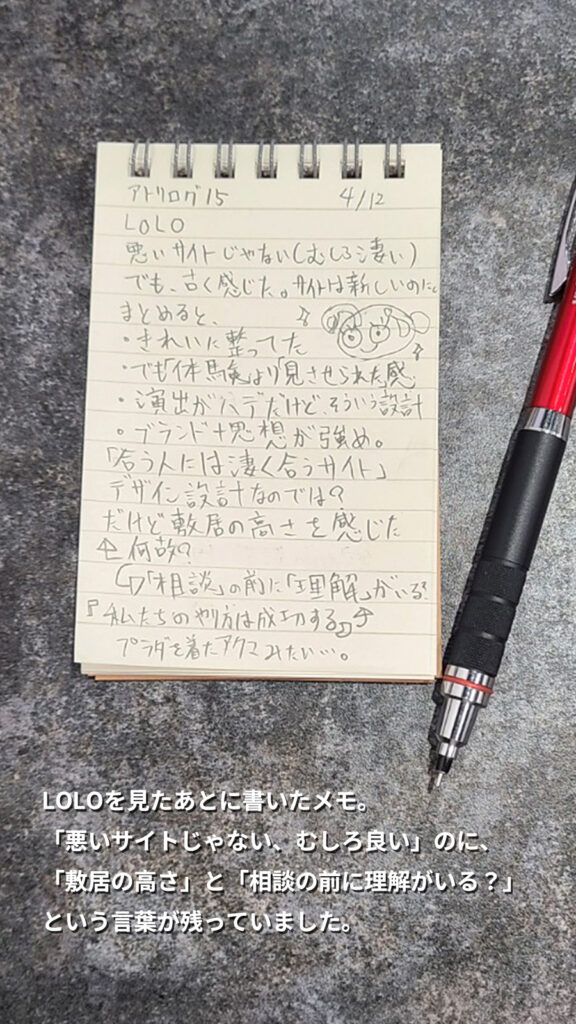 アトリログ15 4/12
LOLO
悪いサイトじゃない(むしろ凄い)
でも、古く感じた。サイトは新しいのに。
まとめると、
・きれいに整ってた
・でも「体験」より「見させられた」感
・演出がハデだけど、そういう設計
・ブランド+思想が強め。
「合う人には凄く合うサイト」
デザイン設計なのでは?
だけど敷居の高さを感じた
何故?
「相談」の前に「理解」がいる?
『私たちのやり方は成功する』
プラダを着たアクマみたい…。
LOLOを見たあとに書いたメモ。
「悪いサイトじゃない、むしろ良い」のに、
「敷居の高さ」と「相談の前に理解がいる?」
という言葉が残っていました。